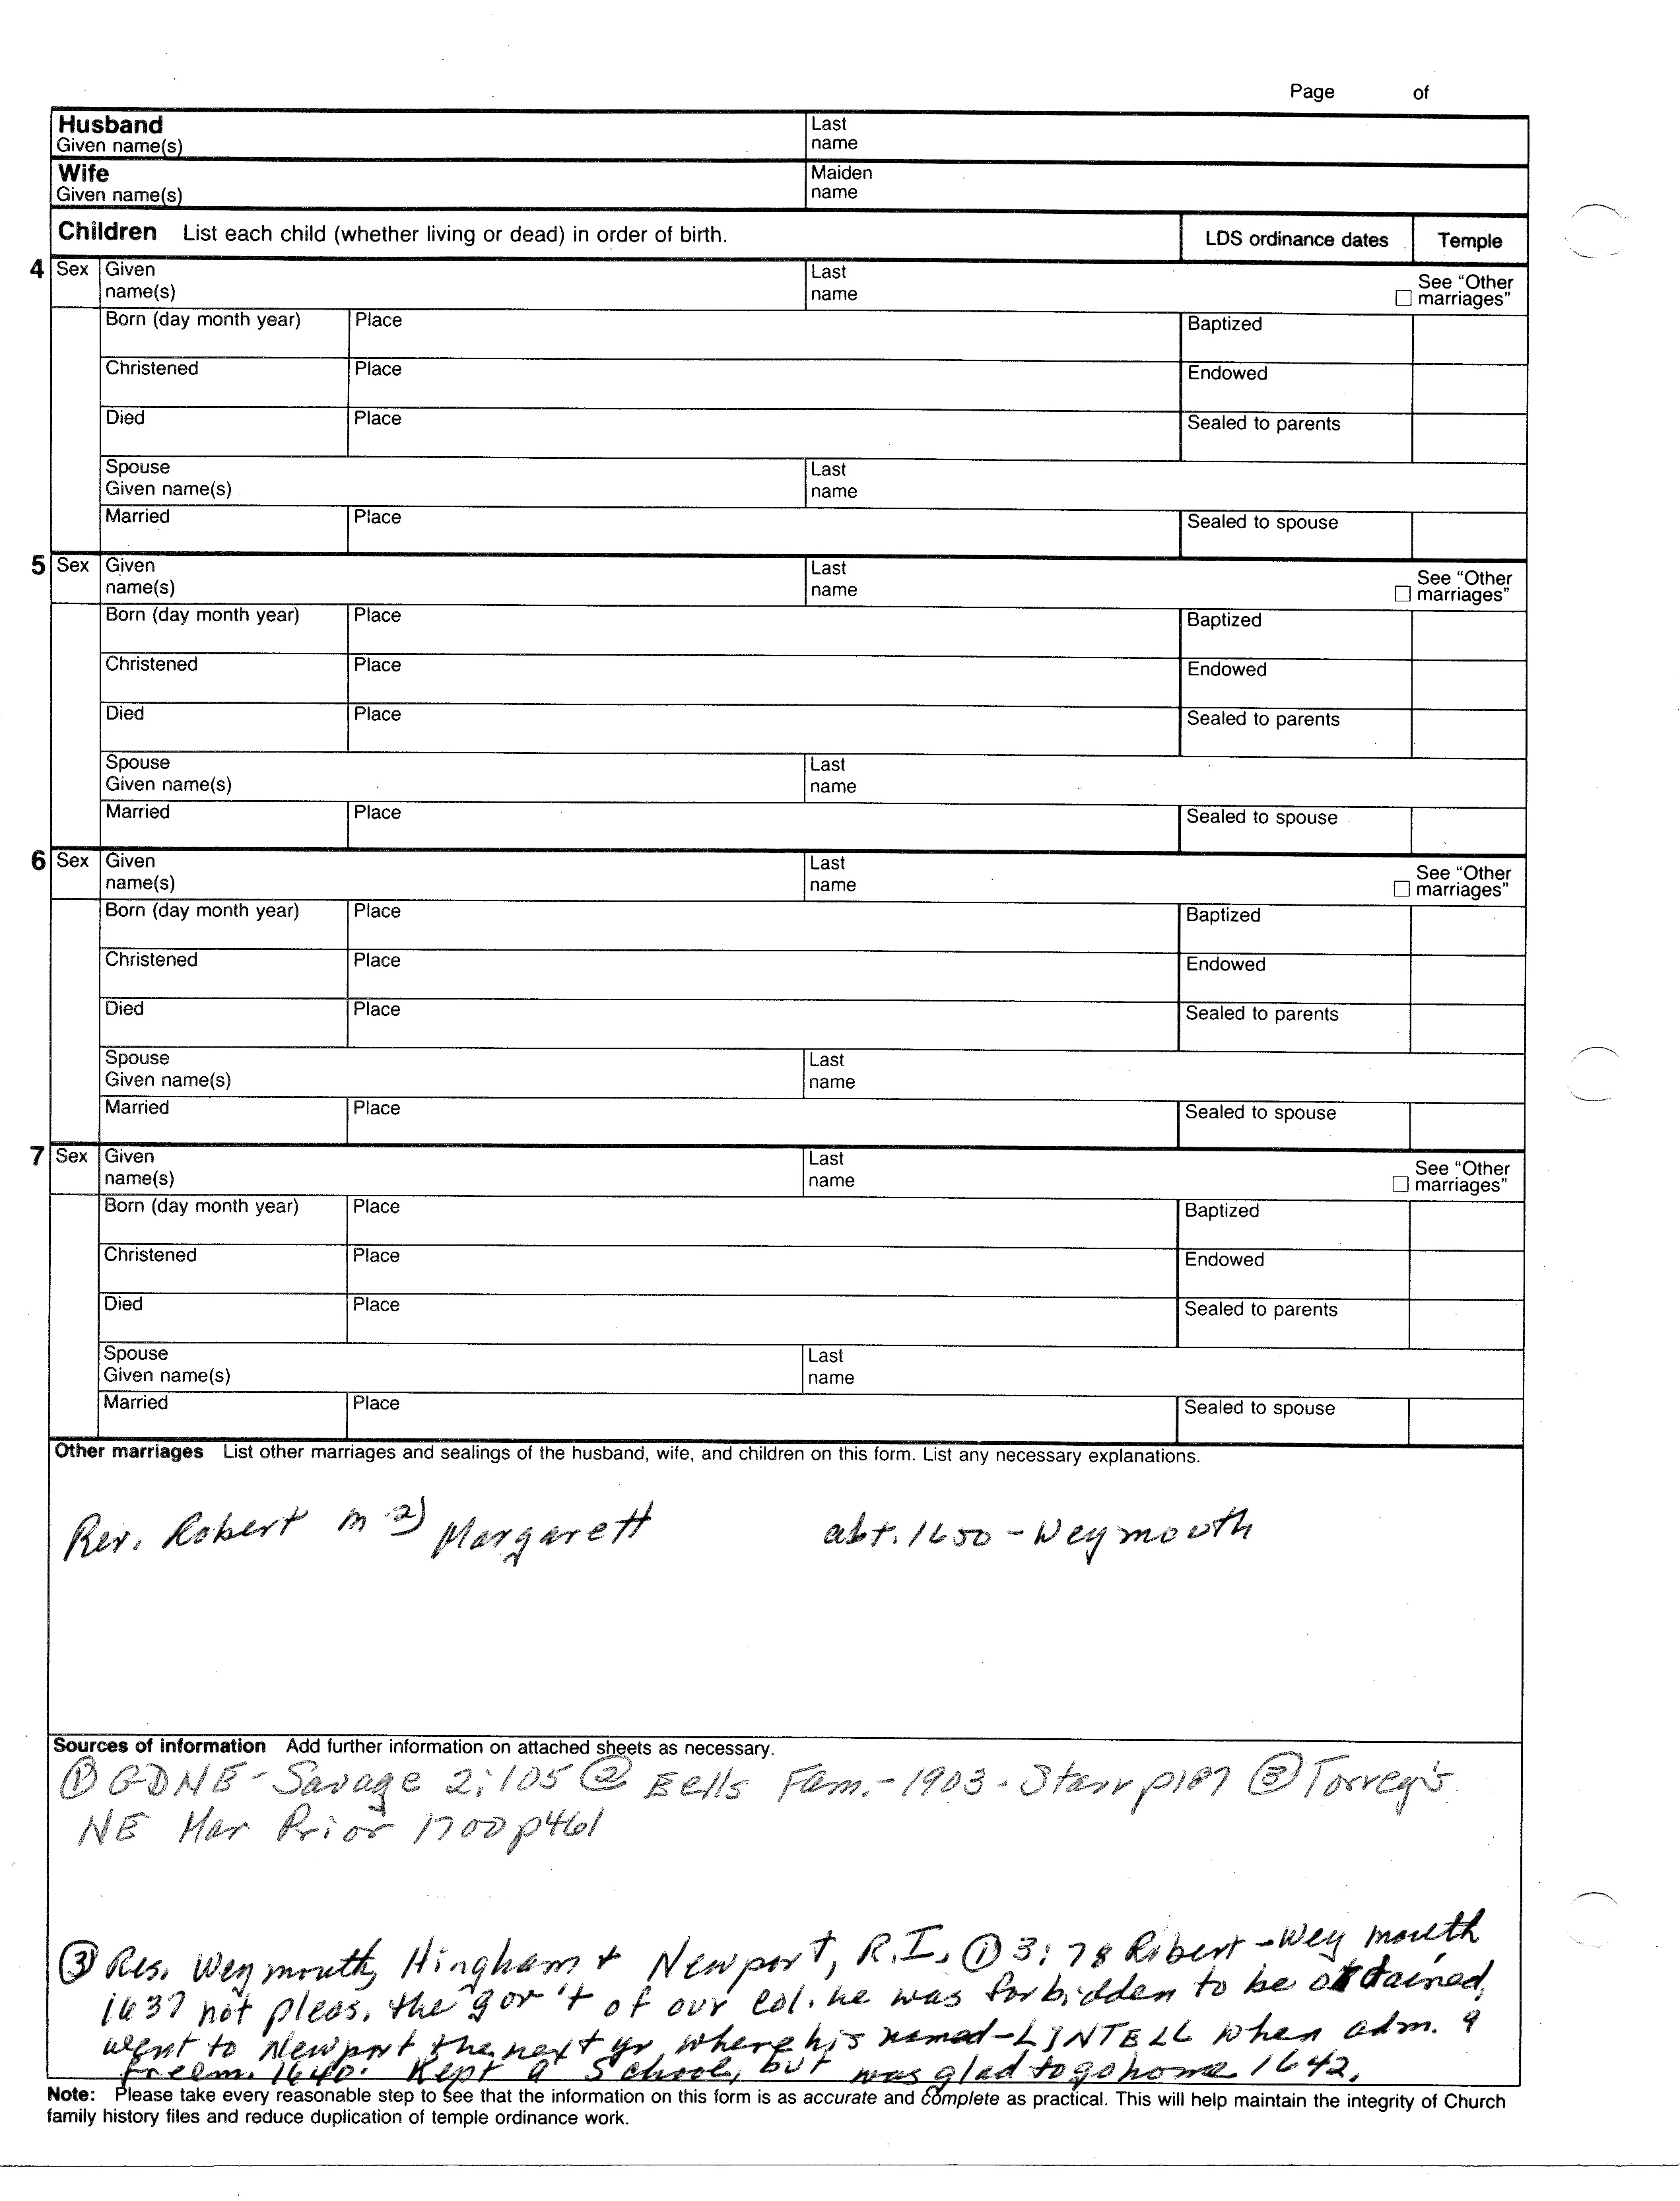 Page of
Husband
Given name(s)
Last
name
Wife
Given name(s)
Maiden
name
Children List each child (whether living or dead) in order of birth.
LDS ordinance dates
Temple
4 Sex Given
name(s)
Last
name
See "Other
marriages"
Born (day month year) Place Baptized
Christened Place Endowed
Died Place Sealed to parents
Spouse
Given name(s)
Last
name
Married Place Sealed to spouse
5 Sex Given
name(s)
Last
name
See "Other
marriages"
Born (day month year) Place Baptized
Christened Place Endowed
Died Place Sealed to parents
Spouse
Given name(s)
Last
name
Married Place Sealed to spouse
6 Sex Given
name(s)
Last
name
See "Other
marriages"
Born (day month year) Place Baptized
Christened Place Endowed
Died Place Sealed to parents
Spouse
Given name(s)
Last
name
Married Place Sealed to spouse
7 Sex Given
name(s)
Last
name
See "Other
marriages"
Born (day month year) Place Baptized
Christened Place Endowed
Died Place Sealed to parents
Spouse
Given name(s)
Last
name
Married Place Sealed to spouse
Other marriages List other marriages and sealings of the husband, wife, and children on this form. List any necessary explanations.
Rev. Robert m 2) Margarett abt. 1650 - Weymouth
Sources of information Add further information on attached sheets as necessary.
① GDNE - Savage 2:105 ② Eells Fam. - 1903 - Starr p187 ③ Torrey's
NE Mar Prior 1700 p461
③ Res. Weymouth, Hingham + Newport, R.I. ① 3:78 Robert - Weymouth
1637 not pleas. the gov't of our col. he was forbidden to be ordained,
went to Newport the next yr where his named - LINTELL when adm. a
freem. 1640. Kept a School, but was glad to go home 1642.
Note: Please take every reasonable step to see that the information on this form is as accurate and complete as practical. This will help maintain the integrity of Church
family history files and reduce duplication of temple ordinance work.